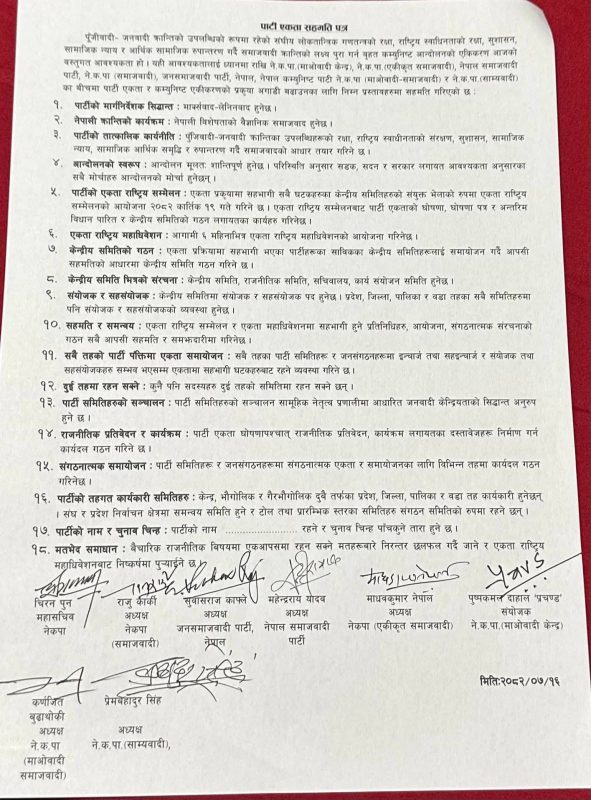 पार्टी एकता सहमति पत्र
पूँजीवादी- जनवादी क्रान्तिको उपलब्धिको रूपमा रहेको संघीय लोकतान्त्रिक गणतन्त्रको रक्षा, राष्ट्रिय स्वाधिनताको रक्षा, सुशासन,
सामाजिक न्याय र आर्थिक सामाजिक रुपान्तरण गर्दै समाजवादी क्रान्तिको लक्ष्य पुरा गर्न वृहत कम्युनिष्ट आन्दोलनको एकिकरण आजको
वस्तुगत आवश्यकता हो । यही आवश्यकतालाई ध्यानमा राखि ने.क.पा.(माओवादी केन्द्र), ने.क.पा.(एकीकृत समाजवादी), नेपाल समाजवादी
पार्टी, ने.क.पा. (समाजवादी), जनसमाजवादी पार्टी, नेपाल, नेपाल कम्युनिष्ट पाटी ने.क.पा (माओवादी-समाजवादी) र ने.क.पा.(साम्यवादी)
का बीचमा पार्टी एकता र कम्युनिष्ट एकीकरणको प्रकृया अगाडी बढाउनका लागि निम्न प्रस्तावहरुमा सहमति गरिएको छ :
१. पार्टीको मार्गनिर्देशक सिद्धान्त : मार्क्सवाद-लेनिनवाद हुनेछ ।
२. नेपाली क्रान्तिको कार्यक्रम : नेपाली विशेषताको वैज्ञानिक समाजवाद हुनेछ ।
३. पार्टीको तात्कालिक कार्यनीति : पुँजिवादी-जनवादी क्रान्तिका उपलब्धिहरूको रक्षा, राष्ट्रिय स्वाधीनताको संरक्षण, सुशासन, सामाजिक
न्याय, सामाजिक आर्थिक समृद्धि र रुपान्तरण गर्दै समाजवादको आधार तयार गरिने छ ।
४. आन्दोलनको स्वरूप : आन्दोलन मूलत: शान्तिपूर्ण हुनेछ । परिस्थिति अनुसार सडक, सदन र सरकार लगायत आवश्यकता अनुसारका
सबै मोर्चाहरु आन्दोलनको मोर्चा हुनेछन् ।
५. पार्टीको एकता राष्ट्रिय सम्मेलन : एकता प्रकृयामा सहभागी सबै घटकहरुका केन्द्रीय समितिहरुको संयुक्त भेलाको रुपमा एकता राष्ट्रिय
सम्मेलनको आयोजना २०८२ कार्तिक १९ गते गरिने छ । एकता राष्ट्रिय सम्मेलनबाट पार्टी एकताको घोषणा, घोषणा पत्र र अन्तरिम
विधान पारित र केन्द्रीय समितिको गठन लगायतका कार्यहरु गरिनेछ ।
६. एकता राष्ट्रिय महाधिवेशन : आगामी ६ महिनाभित्र एकता राष्ट्रिय महाधिवेशनको आयोजना गरिनेछ ।
७. केन्द्रीय समितिको गठन : एकता प्रक्रियामा सहभागी भएका पार्टीहरूका साविकका केन्द्रीय समितिहरूलाई समायोजन गर्दै आपसी
सहमतिको आधारमा केन्द्रीय समिति गठन गरिने छ ।
८. केन्द्रीय समिति भित्रको संरचना : केन्द्रीय समिति, राजनीतिक समिति, सचिवालय, कार्य संयोजन समिति हुनेछ ।
९. संयोजक र सहसंयोजक : केन्द्रीय समितिमा संयोजक र सहसंयोजक पद हुनेछ । प्रदेश, जिल्ला, पालिका र वडा तहका सबै समितिहरुमा
पनि संयोजक र सहसंयोजकको व्यवस्था हुनेछ ।
१०. सहमति र समन्वय : एकता राष्ट्रिय सम्मेलन र एकता महाधिवेशनमा सहभागी हुने प्रतिनिधिहरु, आयोजना, संगठनात्मक संरचनाको
गठन सबै आपसी सहमति र समझदारीमा गरिनेछ ।
११. सबै तहको पार्टी पंक्तिमा एकता समायोजन : सबै तहका पार्टी समितिहरु र जनसंगठनहरूमा इन्चार्ज तथा सहइन्चार्ज र संयोजक तथा
सहसंयोजकहरु सम्भव भएसम्म एकतामा सहभागी घटकहरुबाट रहने व्यवस्था गरिने छ ।
१२. दुई तहमा रहन सक्ने : कुनै पनि सदस्यहरु दुई तहको समितिमा रहन सक्ने छन् ।
१३. पार्टी समितिहरुको सञ्चालन : पार्टी समितिहरुको सञ्चालन सामूहिक नेतृत्व प्रणालीमा आधारित जनवादी केन्द्रियताको सिद्धान्त अनुरुप
हुने छ ।
१४. राजनीतिक प्रतिवेदन र कार्यक्रम : पार्टी एकता घोषणापश्चात् राजनीतिक प्रतिवेदन, कार्यक्रम लगायतका दस्तावेजहरू निर्माण गर्न
कार्यदल गठन गरिने छ ।
१५. संगठनात्मक समायोजन : पार्टी समितिहरू र जनसंगठनहरूमा संगठनात्मक एकता र समायोजनका लागि विभिन्न तहमा कार्यदल गठन
गरिनेछ ।
१६. पार्टीको तहगत कार्यकारी समितिहरु : केन्द्र, भौगोलिक र गैरभौगोलिक दुवै तर्फका प्रदेश, जिल्ला, पालिका र वडा तह कार्यकारी हुनेछन्
। संघ र प्रदेश निर्वाचन क्षेत्रमा समन्वय समिति हुने र टोल तथा प्रारम्भिक स्तरका समितिहरु संगठन समितिको रुपमा रहने छन् ।
१७. पार्टीको नाम र चुनाव चिन्ह : पार्टीको नाम ........................ रहने र चुनाव चिन्ह पाँचकुने तारा हुने छ ।
१८. मतभेद समाधान : बैचारिक राजनीतिक विषयमा एकआपसमा रहन सक्ने मतहरूबारे निरन्तर छलफल गर्दै जाने र एकता राष्ट्रिय
महाधिवेशनबाट निष्कर्षमा पुर्‍याईने छ ।
चिरन पुन राजु कार्की सुवासराज काफ्ले महेन्द्रराय यादव माधवकुमार नेपाल पुष्पकमल दाहाल 'प्रचण्ड'
महासचिव अध्यक्ष अध्यक्ष अध्यक्ष अध्यक्ष संयोजक
नेकपा नेकपा जनसमाजवादी पार्टी, नेपाल समाजवादी नेकपा (एकीकृत समाजवादी) ने.क.पा.(माओवादी केन्द्र)
(समाजवादी) नेपाल पार्टी
मिति:२०८२/०७/१६
कर्णजित प्रेमबहादुर सिंह
बुढाथोकी
अध्यक्ष अध्यक्ष
ने.क.पा ने.क.पा.(साम्यवादी),
(माओवादी
समाजवादी)